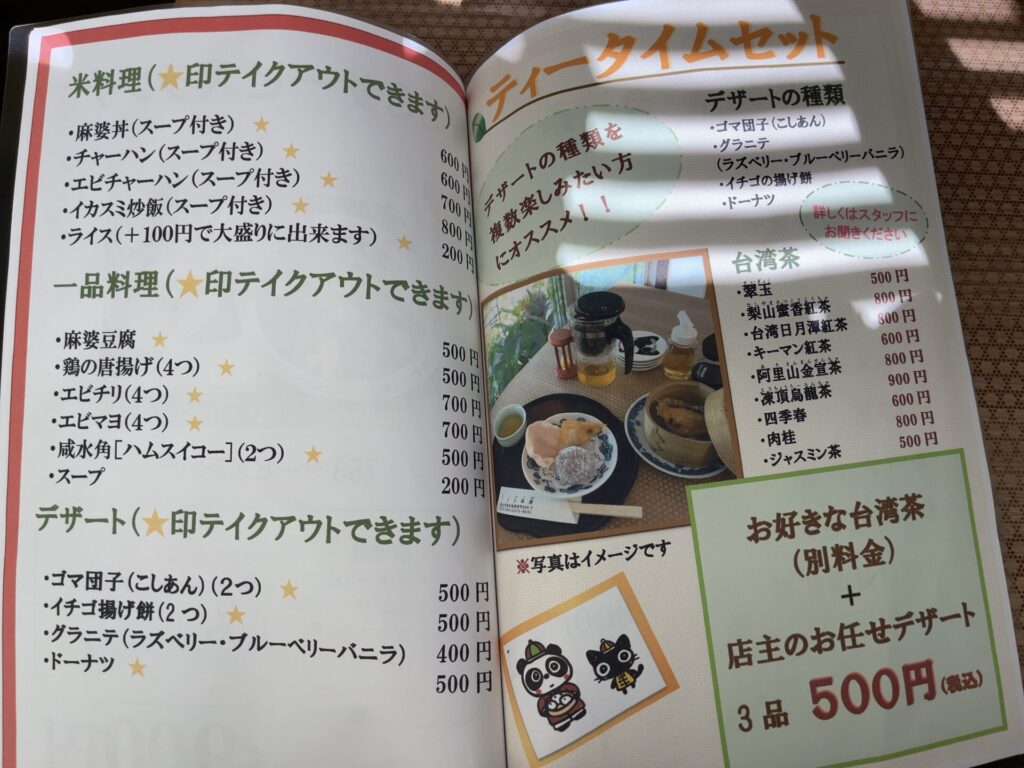 米料理(★印テイクアウトできます)
・麻婆丼(スープ付き) ★ 600円
・チャーハン(スープ付き) ★ 600円
・エビチャーハン(スープ付き) ★ 700円
・イカスミ炒飯(スープ付き) ★ 800円
・ライス(+100円で大盛りに出来ます) ★ 200円
一品料理(★印テイクアウトできます)
・麻婆豆腐 ★ 500円
・鶏の唐揚げ(4つ) ★ 500円
・エビチリ(4つ) ★ 700円
・エビマヨ(4つ) ★ 700円
・咸水角[ハムスイコー](2つ) ★ 500円
・スープ 200円
デザート(★印テイクアウトできます)
・ゴマ団子(こしあん)(2つ) ★ 500円
・イチゴ揚げ餅(2つ) ★ 500円
・グラニテ(ラズベリー・ブルーベリーバニラ) 400円
・ドーナツ ★ 500円
ティータイムセット
デザートの種類を
複数楽しみたい方
にオススメ!!
デザートの種類
・ゴマ団子(こしあん)
・グラニテ
(ラズベリー・ブルーベリーバニラ)
・イチゴの揚げ餅
・ドーナツ
詳しくはスタッフに
お聞きください
台湾茶
・翠玉 500円
・梨山蜜香紅茶 800円
・台湾日月潭紅茶 800円
・キーマン紅茶 600円
・阿里山金宣茶 800円
・凍頂烏龍茶 900円
・四季春 600円
・肉桂 800円
・ジャスミン茶 500円
※写真はイメージです
お好きな台湾茶
(別料金)
+
店主のお任せデザート
3品 500円(税込)